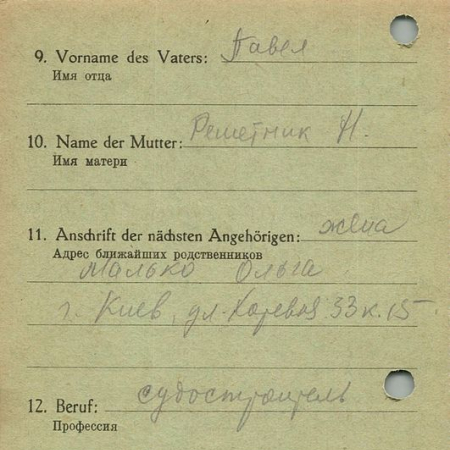 9. Vorname des Vaters: Павел
Имя отца
10. Name der Mutter: Решетник Н.
Имя матери
11. Anschrift der nächsten Angehörigen: жена
Адрес ближайших родственников
Малько Ольга
г. Киев, ул. 33 к. 15
12. Beruf: судостроитель
Профессия